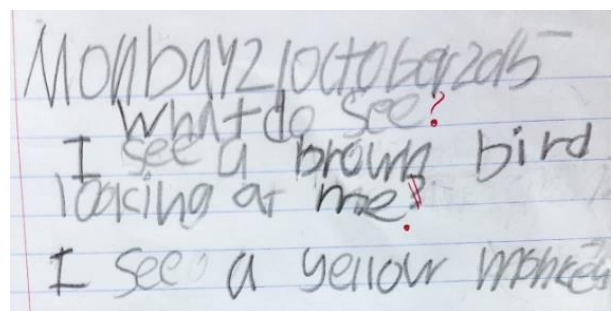 Monbay 21 october 2015
What do see?
I see a brown bird
loacing at me?.
I see a yellow monkey